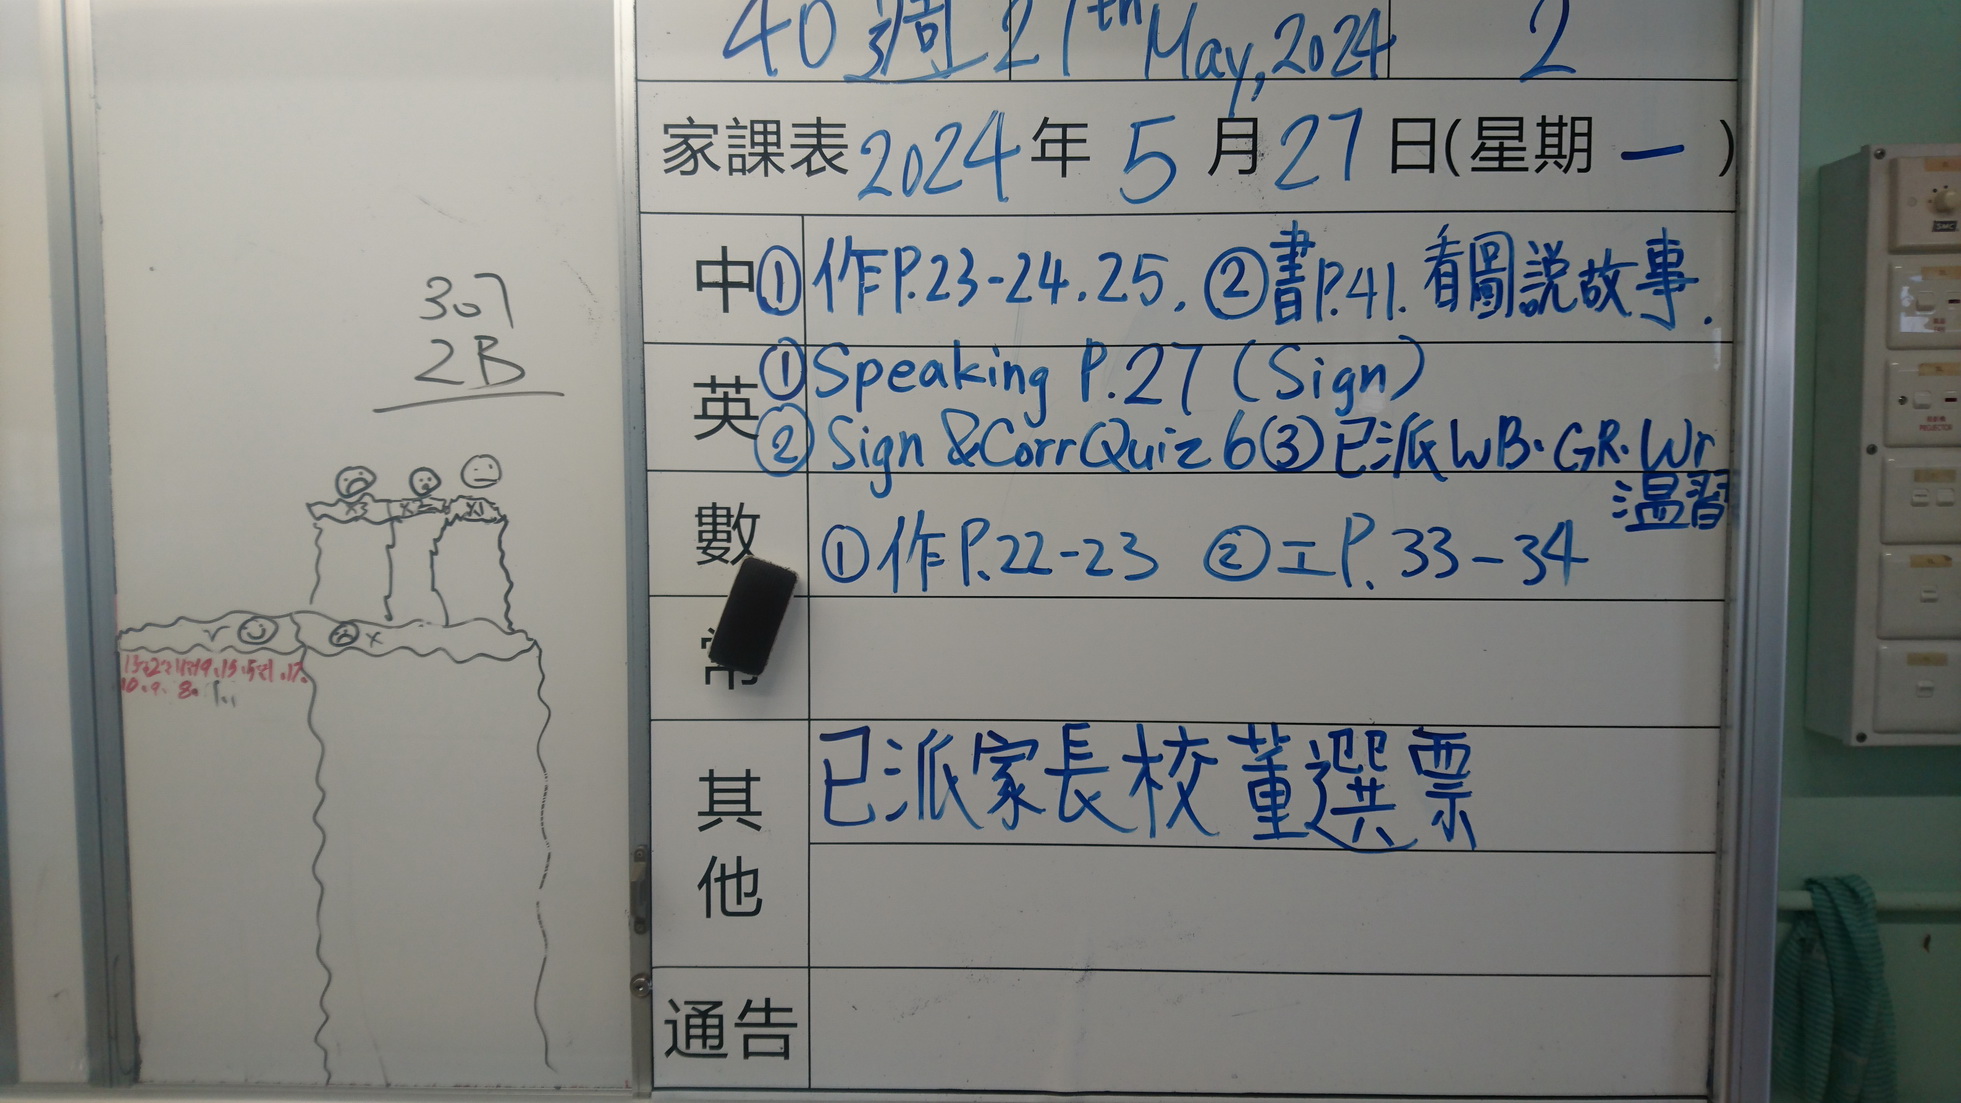 307
2B
40 週 27th May, 2024 2
家課表 2024 年 5 月 27 日(星期 一 )
中 ① 作P.23-24.25. ② 書P.41. 看圖説故事.
英 ① Speaking P.27 (Sign)
② Sign & Corr Quiz 6 ③ 已派 WB. GR. Wr
温習
數 ① 作P.22-23 ② 工P. 33-34
常
其他 已派家長校董選票
通告
x3 x2 x1
✓ x
10. 9. 8.